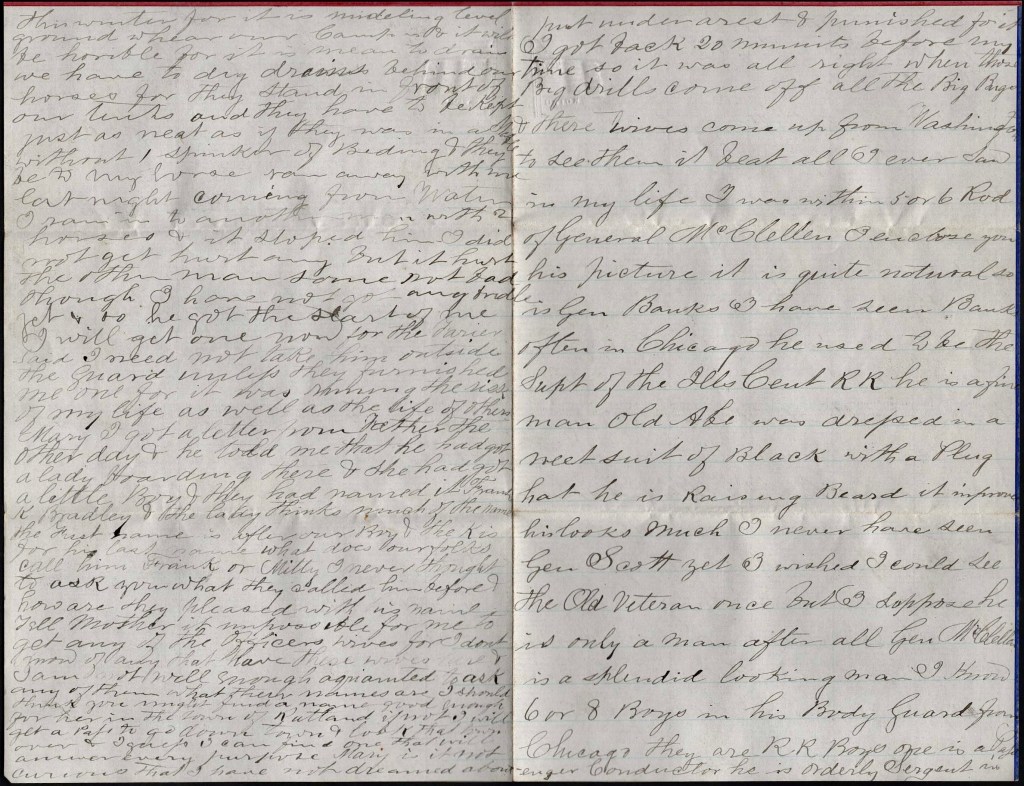 this winter for it is mideling level
ground whear our Camp is & it will
be horrible for it is mean to drain
we have to dig drains behind our
horses for they stand in front of
our tents and they have to be kept
just as neat as if they was in a
without 1 sprinkle of Beding & they
be to my horse ran away with me
last night coming from Water
I ran in to another man with 2
horses & it stoped him I did
not get hurt any but it hurt
the other man some not bad
though I have not got any bridle
yet so he got the start of me
I will get one now for the
said I need not take him outside
the Guard unless they furnished
me one for it was runing the risk
of my life as well as the life of others
Mary I got a letter from Father the
other day & he told me that he had got
a lady boarding there & she had got
a little Boy & they had named it Frank
K Bradley & the lady thinks much of the name
the first name is after our Boy & the K is
for his last name what does your folks
call him Frank or Milly I never thought
to ask you what they called him before &
how are they pleased with is name
Tell Mother it imposible for me to
get any of the Officers wives for I dont
know of any that have there wives here &
I am not well enough aquainted to ask
any of them what their names are I should
think you might find a name good enough
for her in the town of Rutland if not I will
get a Pass to go down town & look that
over & I guess I can find one that will
answer every purpose Mary is it not
curious that I have not dreamed about
put under arest & punished for it
I got back 20 minuts before my
time so it was all right when those
Big drills come off all the Big Bugs
& there wives come up from Washington
to see them it beat all I ever saw
in my life I was within 5 or 6 Rod
of General McClellen I enclose you
his picture it is quite natural so
is Gen Banks I have seen Banks
often in Chicago he used to be the
Supt of the Ills Cent RR he is a fine
man Old Abe was dressed in a
neet suit of Black with a Plug
hat he is Raising Beard it improves
his looks much I never have seen
Gen Scott yet I wished I could see
the Old Veteran once but I suppose he
is only a man after all Gen McClellen
is a splendid looking man I know
6 or 8 Boys in his Body Guard from
Chicago they are RR Boys one is a Pass
enger Conductor he is orderly Sergent in